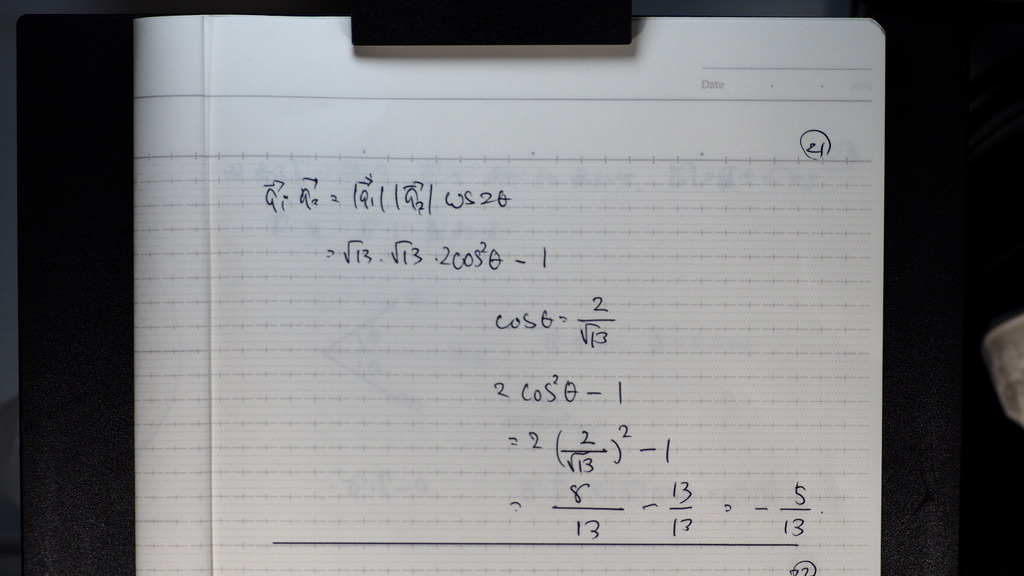 Date
21
q₁⃗ · q₂⃗ = |q₁⃗| |q₂⃗| cos2θ
= √13 · √13 · 2cos²θ − 1
cosθ = 2/√13
2 cos²θ − 1
= 2 (2/√13)² − 1
= 8/13 − 13/13 = − 5/13.
22